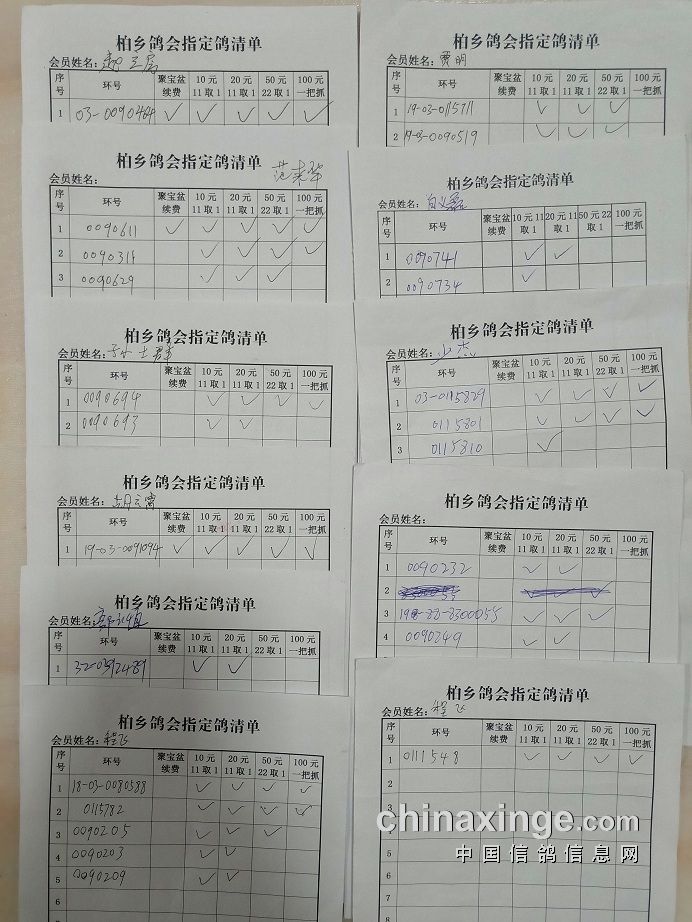 柏乡鸽会指定鸽清单
会员姓名：
序号 环号 聚宝盆续费 10元11取1 20元11取1 50元22取1 100元一把抓
1 03-0090464 ✓ ✓ ✓ ✓ ✓
柏乡鸽会指定鸽清单
会员姓名：范来华
序号 环号 聚宝盆续费 10元11取1 20元11取1 50元22取1 100元一把抓
1 0090611 ✓ ✓ ✓ ✓ ✓
2 0090314 ✓ ✓ ✓ ✓
3 0090629 ✓ ✓ ✓
柏乡鸽会指定鸽清单
会员姓名：
序号 环号 聚宝盆续费 10元11取1 20元11取1 50元22取1 100元一把抓
1 0090694 ✓ ✓ ✓ ✓
2 0090693 ✓ ✓
柏乡鸽会指定鸽清单
会员姓名：
序号 环号 聚宝盆续费 10元11取1 20元11取1 50元22取1 100元一把抓
1 19-03-0091094 ✓ ✓ ✓ ✓ ✓
柏乡鸽会指定鸽清单
会员姓名：
序号 环号 聚宝盆续费 10元11取1 20元11取1 50元22取1 100元一把抓
1 32-0392489 ✓ ✓
柏乡鸽会指定鸽清单
会员姓名：程飞
序号 环号 聚宝盆续费 10元11取1 20元11取1 50元22取1 100元一把抓
1 18-03-0080588 ✓ ✓ ✓ ✓
2 0115782 ✓ ✓ ✓ ✓
3 0090205 ✓ ✓ ✓
4 0090203 ✓ ✓
5 0090209 ✓ ✓
6
7
柏乡鸽会指定鸽清单
会员姓名：贾明
序号 环号 聚宝盆续费 10元11取1 20元11取1 50元22取1 100元一把抓
1 19-03-0115711 ✓ ✓ ✓
2 19-03-0090519 ✓ ✓ ✓
柏乡鸽会指定鸽清单
会员姓名：
序号 环号 聚宝盆续费 10元11取1 20元11取1 50元22取1 100元一把抓
1 0090741 ✓ ✓
2 0090734 ✓
柏乡鸽会指定鸽清单
会员姓名：少杰
序号 环号 聚宝盆续费 10元11取1 20元11取1 50元22取1 100元一把抓
1 03-0115829 ✓ ✓ ✓ ✓
2 0115801 ✓ ✓ ✓ ✓
3 0115810 ✓
柏乡鸽会指定鸽清单
会员姓名：
序号 环号 聚宝盆续费 10元11取1 20元11取1 50元22取1 100元一把抓
1 0090232 ✓ ✓
2
3 8300055 ✓ ✓ ✓
4 0090249 ✓ ✓
柏乡鸽会指定鸽清单
会员姓名：程飞
序号 环号 聚宝盆续费 10元11取1 20元11取1 50元22取1 100元一把抓
1 0111548 ✓ ✓ ✓ ✓
2
3
4
5
6
7
8
chinaxinge.com
中国信鸽信息网